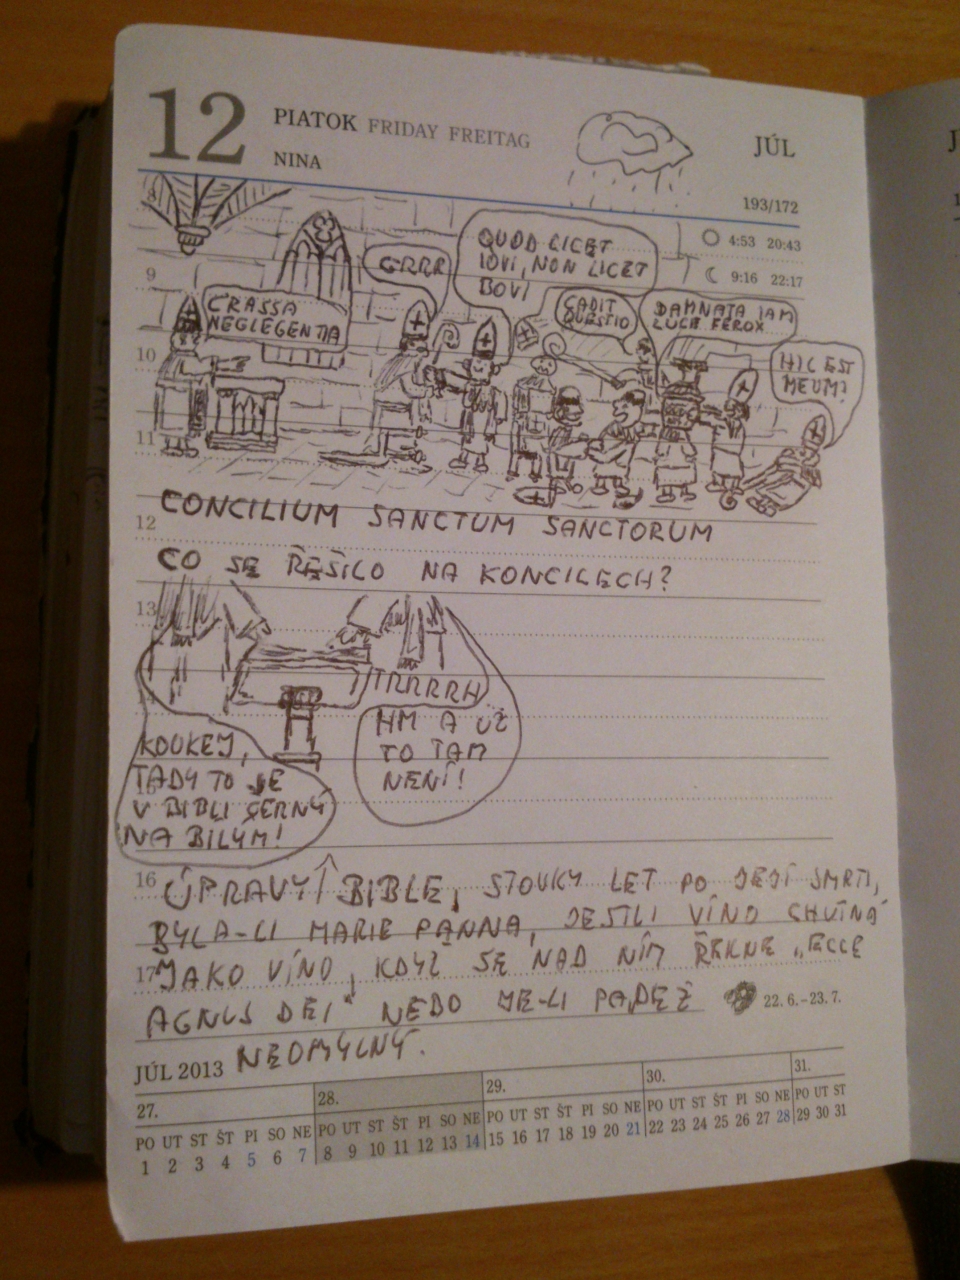 12 PIATOK FRIDAY FREITAG JÚL
NINA
193/172
8
4:53 20:43
9
9:16 22:17
10
11
CRASSA
NEGLEGENTIA
GRRR
QUOD LICET
IOVI, NON LICET
BOVI
CADIT
QUESTIO
DAMNATA IAM
LUCE FEROX
HIC EST
MEUM!
CONCILIUM SANCTUM SANCTORUM
12
CO SE ŘEŠILO NA KONCILECH?
13
TRRRRH
KOUKEJ,
TADY TO JE
V BIBLI ČERNÝ
NA BILYM!
HM A UŽ
TO TAM
NENÍ!
16 ÚPRAVY BIBLE, STOVKY LET PO JEJÍ SMRTI,
BYLA-LI MARIE PANNA, JESTLI VÍNO CHUTNÁ
17 JAKO VÍNO, KDYŽ SE NAD NÍM ŘEKNE „ECCE
AGNUS DEI“ NEBO JE-LI PAPEŽ
22. 6. – 23. 7.
NEOMYLNÝ.
JÚL 2013
27. 28. 29. 30. 31.
PO UT ST ŠT PI SO NE PO UT ST ŠT PI SO NE PO UT ST ŠT PI SO NE PO UT ST ŠT PI SO NE PO UT ST
1 2 3 4 5 6 7 8 9 10 11 12 13 14 15 16 17 18 19 20 21 22 23 24 25 26 27 28 29 30 31